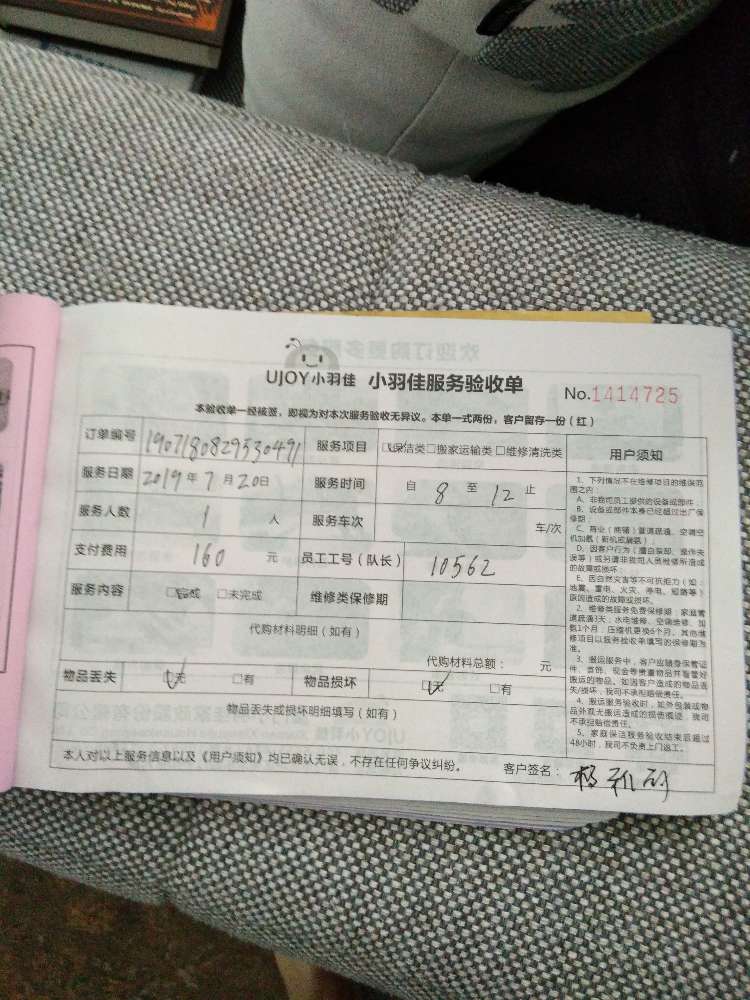 UJOY小羽佳 小羽佳服务验收单 No.1414725
本验收单一经核签，即视为对本次服务验收无异议。本单一式两份，客户留存一份（红）
订单编号 1907180829530491 服务项目 □保洁类□搬家运输类□维修清洗类
服务日期 2019年7月20日 服务时间 自 8 至 12 止
服务人数 1 人 服务车次 车/次
支付费用 160 元 员工工号（队长） 10562
服务内容 □完成 □未完成 维修类保修期
代购材料明细（如有）
代购材料总额： 元
物品丢失 □无 □有 物品损坏 □无 □有
物品丢失或损坏明细填写（如有）
本人对以上服务信息以及《用户须知》均已确认无误，不存在任何争议纠纷。 客户签名：
用户须知
1、下列情况不在维修项目的维保范
围之内：
A、非我司员工提供的设备或部件；
B、设备或部件本身已经超过出厂保
修期；
C、商业（商铺）管道疏通、空调空
机加氨（新机或漏氨）；
D、因客户行为（擅自装卸、操作失
误等）或另请非我司人员维修所造成
的故障或损坏；
E、因自然灾害等不可抗拒力（如：
地震、雷电、火灾、停电、短路等）
原因造成的故障或损坏。
2、维修类服务免费保修期：家庭管
道疏通3天；水电维修、空调装修、加
氨1个月，压缩机更换6个月，其他维
修项目以服务验收单填写的保修期为
准。
3、搬运服务中，客户应随身保管证
件、首饰、现金等贵重物品并看管好
搬运的物品。如因客户造成的物品丢
失/损坏，我司不承担赔偿责任。
4、搬运服务验收时，如外包装或物
品外观无搬运造成的损害痕迹，我司
不承担赔偿责任。
5、家庭保洁服务验收结束后超过
48小时，我司不负责上门返工。